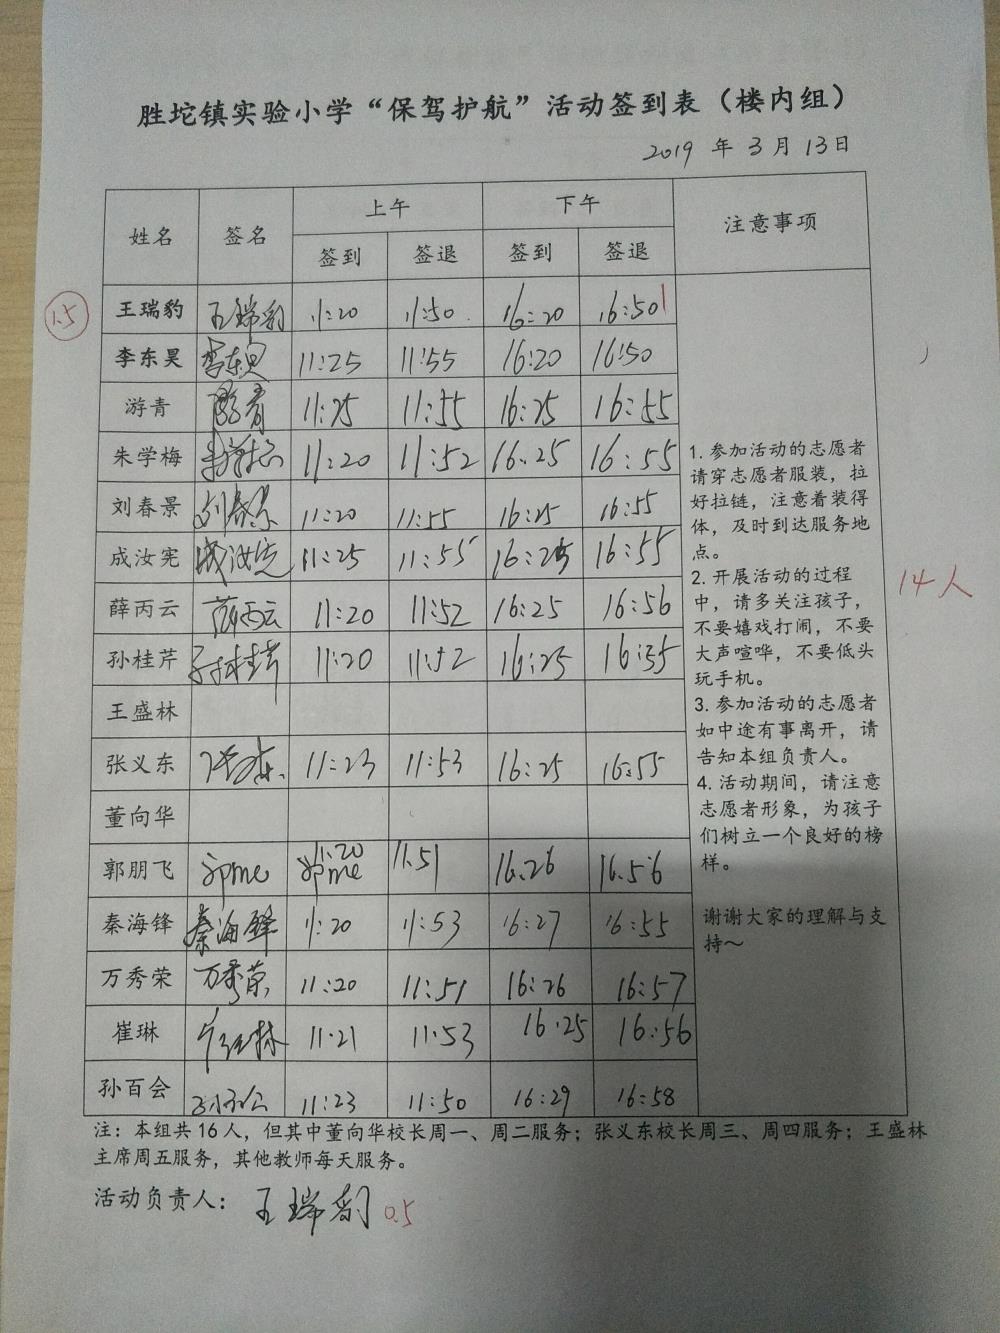 胜坨镇实验小学“保驾护航”活动签到表（楼内组）
2019 年 3 月 13 日
姓名 签名 上午 下午 注意事项
签到 签退 签到 签退
1.5
王瑞豹 王瑞豹 11:20 11:50 16:20 16:50 1
李东昊 李东昊 11:25 11:55 16:20 16:50
游青 游青 11:25 11:55 16:25 16:55
朱学梅 朱学梅 11:20 11:52 16.25 16:55
刘春景 刘春景 11:20 11:55 16:25 16:55
成汝宪 成汝宪 11:25 11:55 16:25 16:55
薛丙云 薛丙云 11:20 11:52 16:25 16:56
孙桂芹 孙桂芹 11:20 11:52 16:25 16:55
王盛林
张义东 张义东 11:23 11:53 16:25 16:55
董向华
郭朋飞 11:20 11.51 16.26 16.56
秦海锋 秦海锋 11:20 11:53 16:27 16:55
万秀荣 万秀荣 11:20 11:51 16:26 16:57
崔琳 11:21 11:53 16:25 16:56
孙百会 孙百会 11:23 11:50 16:29 16:58
1. 参加活动的志愿者
请穿志愿者服装，拉
好拉链，注意着装得
体，及时到达服务地
点。
2. 开展活动的过程
中，请多关注孩子，
不要嬉戏打闹，不要
大声喧哗，不要低头
玩手机。
3. 参加活动的志愿者
如中途有事离开，请
告知本组负责人。
4. 活动期间，请注意
志愿者形象，为孩子
们树立一个良好的榜
样。
谢谢大家的理解与支
持～
14人
注：本组共16人，但其中董向华校长周一、周二服务；张义东校长周三、周四服务；王盛林
主席周五服务，其他教师每天服务。
活动负责人： 王瑞豹 0.5